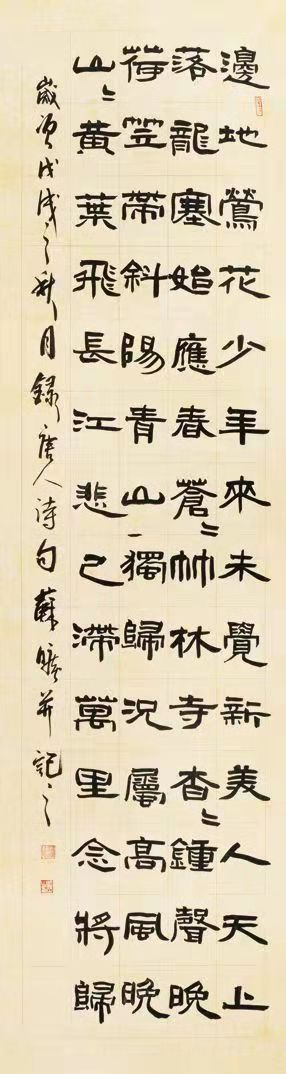 邊地鶯花少年來未覺新美人天上
落龍塞始應春蒼〻竹林寺杳〻鍾聲晚
荷笠帶斜陽青山獨歸況屬高風晚
山〻黃葉飛長江悲已滯萬里念將歸
歲次戊戌之秋月錄唐人詩句蘇并記之